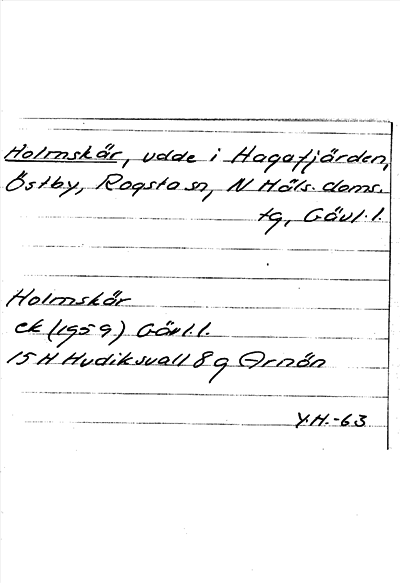 Holmskär, udde i Hagafjärden,
Östby, Rogsta sn, N Häls. doms.
tg, Gävl. l.
Holmskär
ek (1959) Gävl. l.
15 H Hudiksvall 8 g Arnön
Y.H.-63